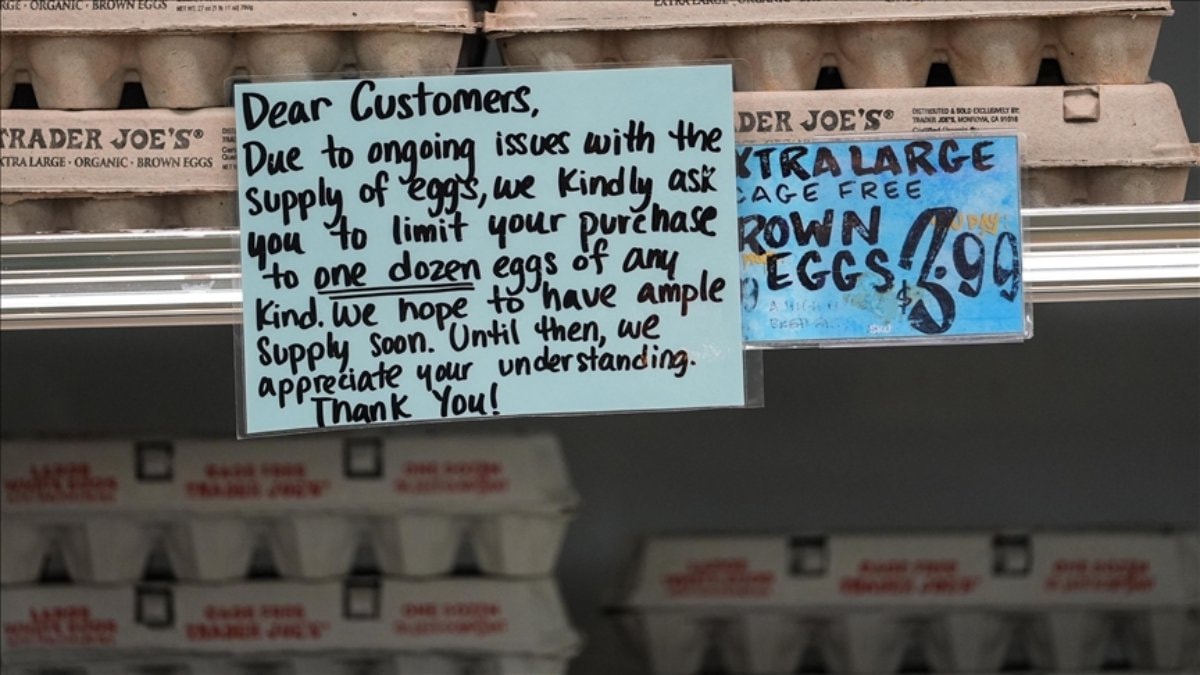 ORGANIC · BROWN EGGS
TRADER JOE'S®
EXTRA LARGE · ORGANIC · BROWN EGGS
Dear Customers,
Due to ongoing issues with the
supply of eggs, we kindly ask
you to limit your purchase
to one dozen eggs of any
kind. We hope to have ample
supply soon. Until then, we
appreciate your understanding.
Thank You!
DER JOE'S®
DISTRIBUTED & SOLD EXCLUSIVELY BY:
TRADER JOE'S, MONROVIA, CA 91016
XTRA LARGE
CAGE FREE
ROWN
EGGS
$3.99
SKU
LARGE
CAGE FREE
TRADER JOE'S
ONE DOZEN
CAGE FREE
TRADER JOE'S
ONE DOZEN